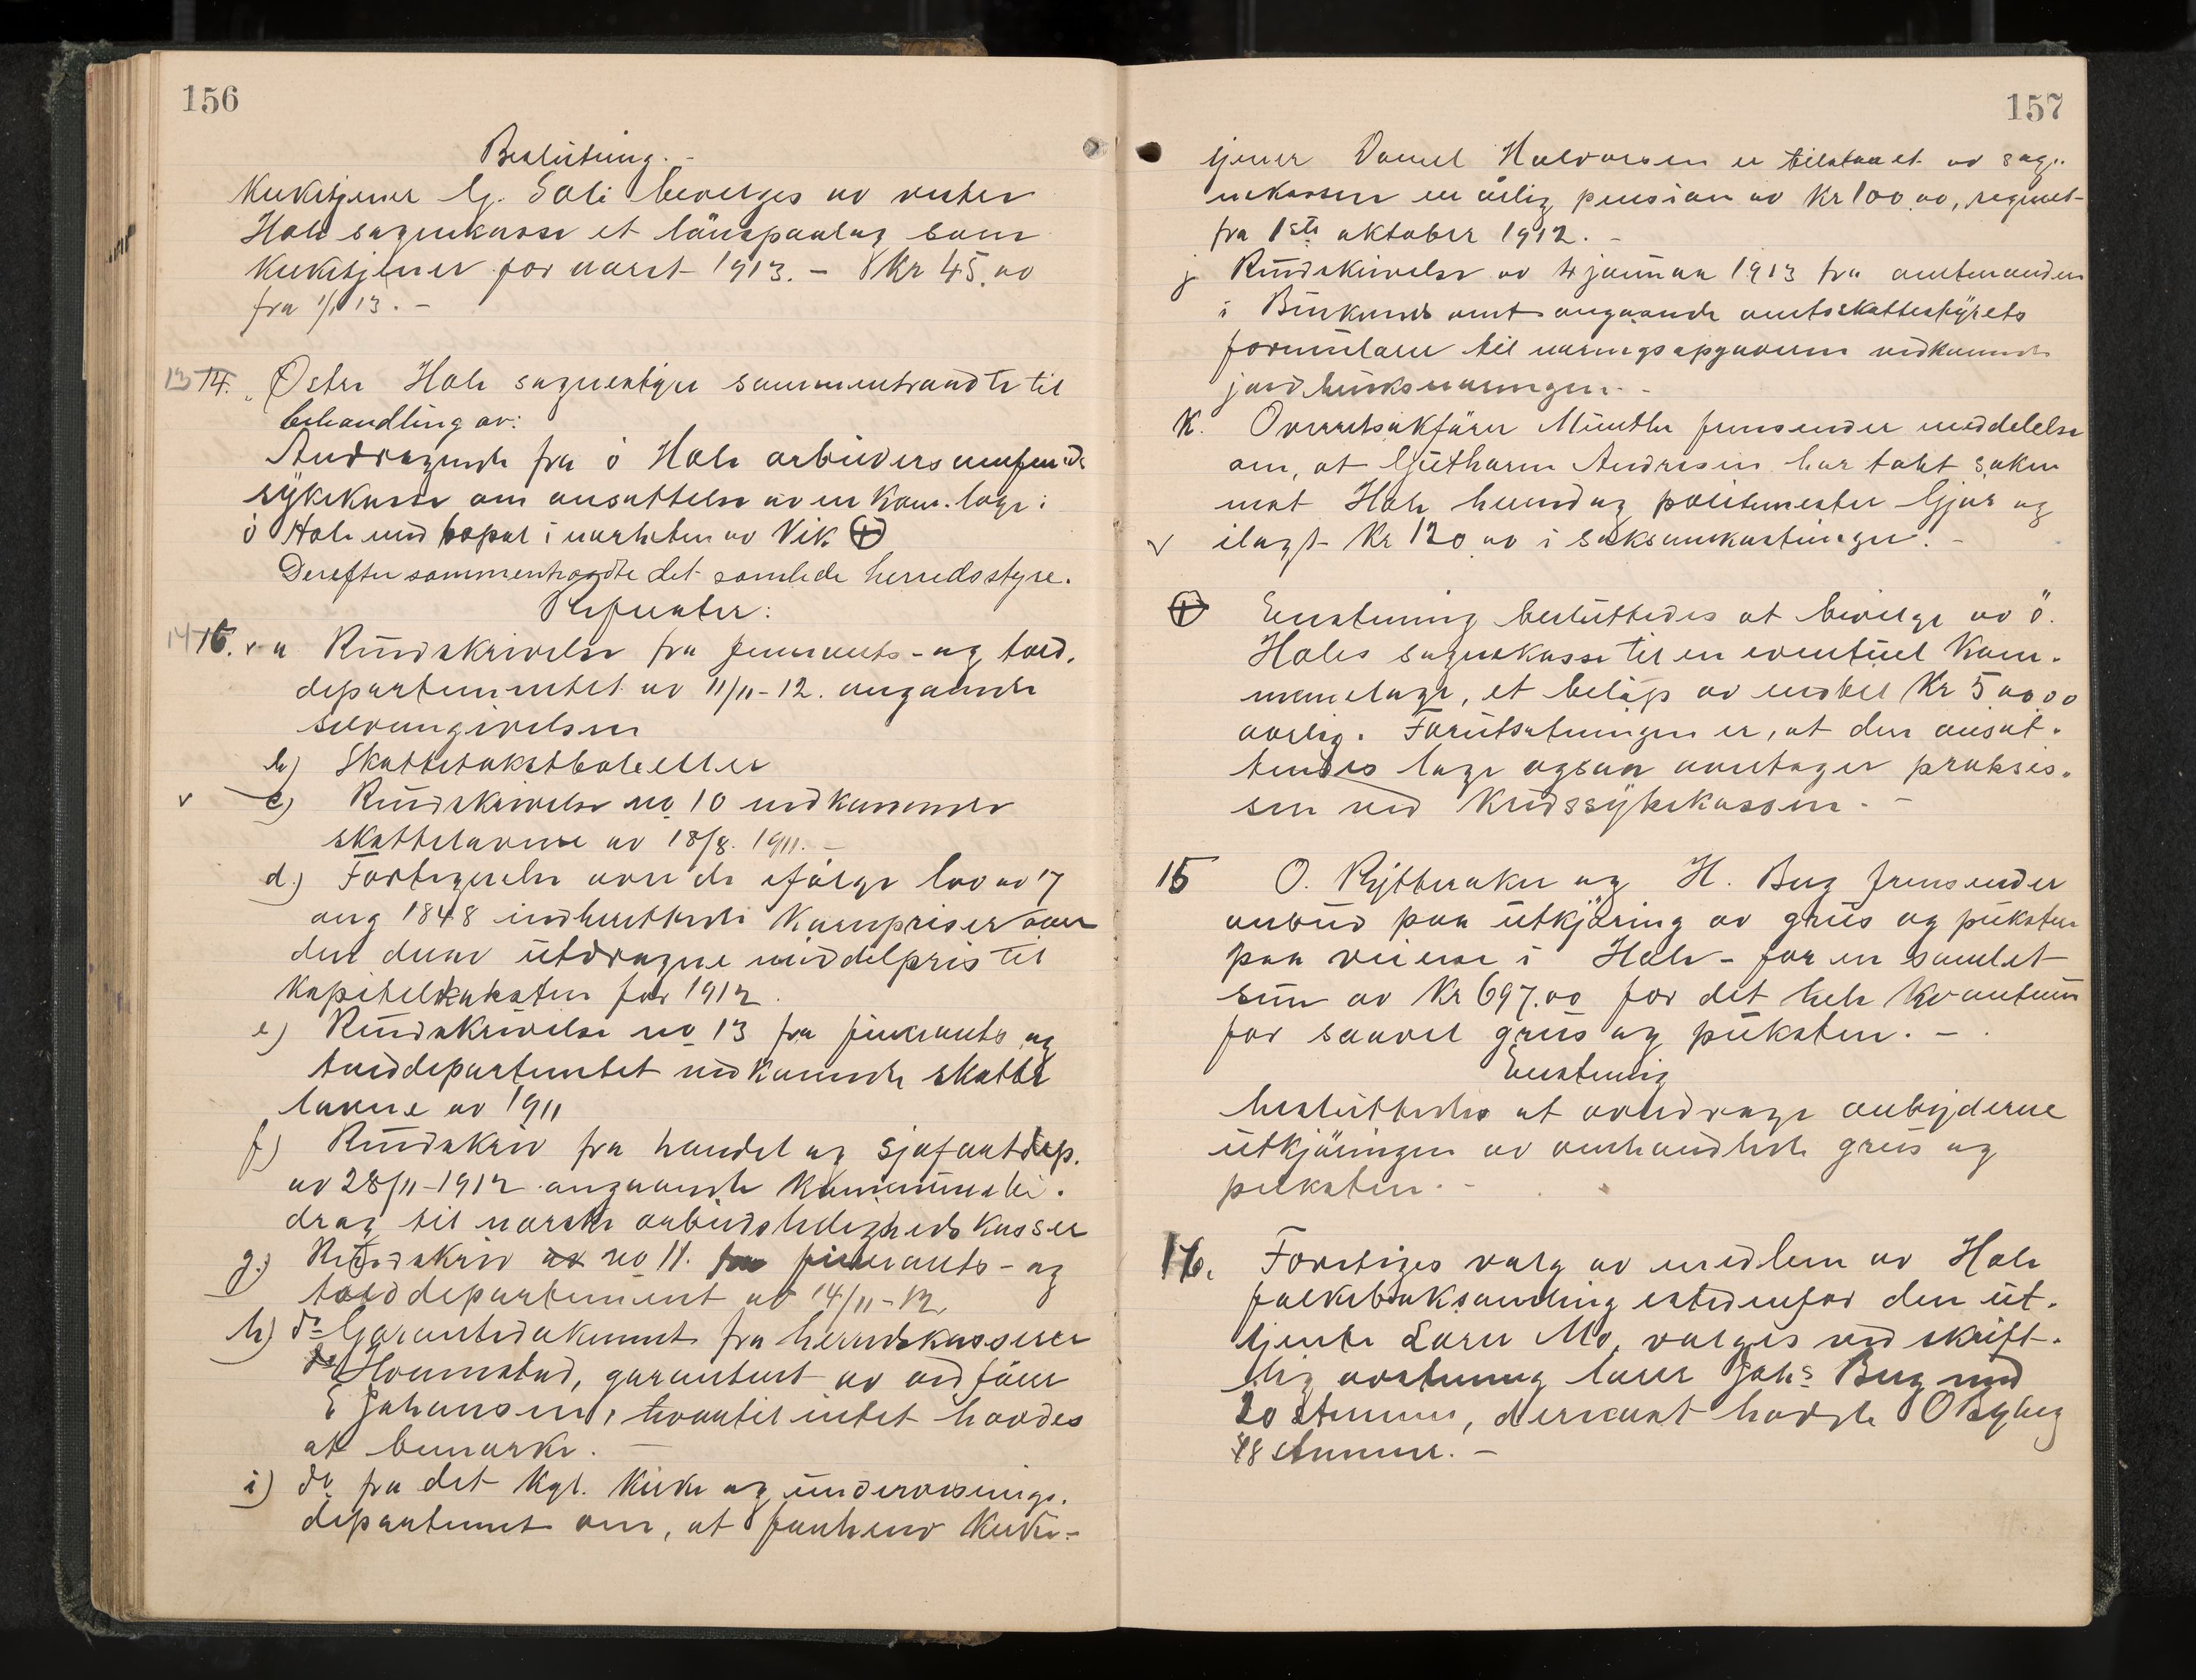 156
Beslutning. -
Kirketjener G. Soli bevilges av vestre
Hole sognekasse et lönspaalæg som
kirketjener for aaret 1913. - Kr 45.00
fra 1/1 13. -
13 14. Østre Hole sognestyre sammentraadte til
behandling av:
Andragende fra ö Hole arbeidersamfunds
sykekasse om ansættelse av en kom. læge i
ö Hole med bopæl i nærheten av Vik ⊕
Derefter sammentraadte det samlede herredsstyre.
Referater:
14 15. v a Rundskrivelse fra finants- og told.
departementet av 11/11-12. angaaende
selvangivelsen
b) Skattetakstbole
v c) Rundskrivelse no 10 vedkommende
skattelovene av 18/8. 1911. -
d.) Fortegnelse over de ifølge lov av 17
aug 1848 indberettede kornpriser over
den derav utdragne middelpris til
kapitelstaksten for 1912.
e) Rundskrivelse no 13 fra finants og
tolddepartementet vedkommende skatte
lovene av 1911
f) Rundskriv fra handel og sjöfartdep.
av 28/11-1912 angaaende kommunebi.
drag til norske arbeidsledigheds kasser
g.) Rundskriv no 11. finants- og
tolddepartement av 14/11-12,
h) do Garantidokument fra herredskasserer
Hornnstad, garantert av ordförer
E Johansen, hvortil intet havdes
at bemerke. -
i) do fra det kgl. kirke og undervisnings.
departement om, at forhenv kirke-
157
tjener Daniel Halvorsen er tilstaaet av sog.
nekassen en årlig pension av kr 100.00, regnet
fra 1ste oktober 1912. -
j Rundskrivelse av 4 januar 1913 fra amtmanden
i Buskerud amt angaaende amtsskattestyrets
formularer til næringsopgaverne vedkommende
jordbruksnæringen. -
k. Overretsakförer Münthe fremsender meddelelse
om, at Guthorm Andresen har tabt saken
mot Hole herred og politimester Gjør og
v ilagt Kr 120.00 i saksomkostninger. -
⊕ Enstemmig besluttedes at bevilge av ö.
Holes sognekasse til en eventuel kom.
munelæge, et beløp av indtil Kr 500.00
aarlig. Forutsætningen er, at den ansæt.
tendes læge ogsaa overtager praksis.
sen ved kredssykekassen. -
15 O. Rytteraker og H. Berg fremsender
anbud paa utkjöring av grus og puksten
paa veiene i Hole - for en samlet
sum av Kr 697.00 for det hele kvantum
for saavel grus og puksten. -
Enstemmig
besluttedes at overdrage anbyderne
utkjöringen av omhandlede grus og
puksten. -
16. Foretages valg av medlem av Hole
folkeboksamling istedenfor den ut.
tjente Lærer Mo, valges ved skrift.
lig avstemning lærer Johs Berg med
20 stemmer, dernæst havde O Bsyberg
18 stemmer. -